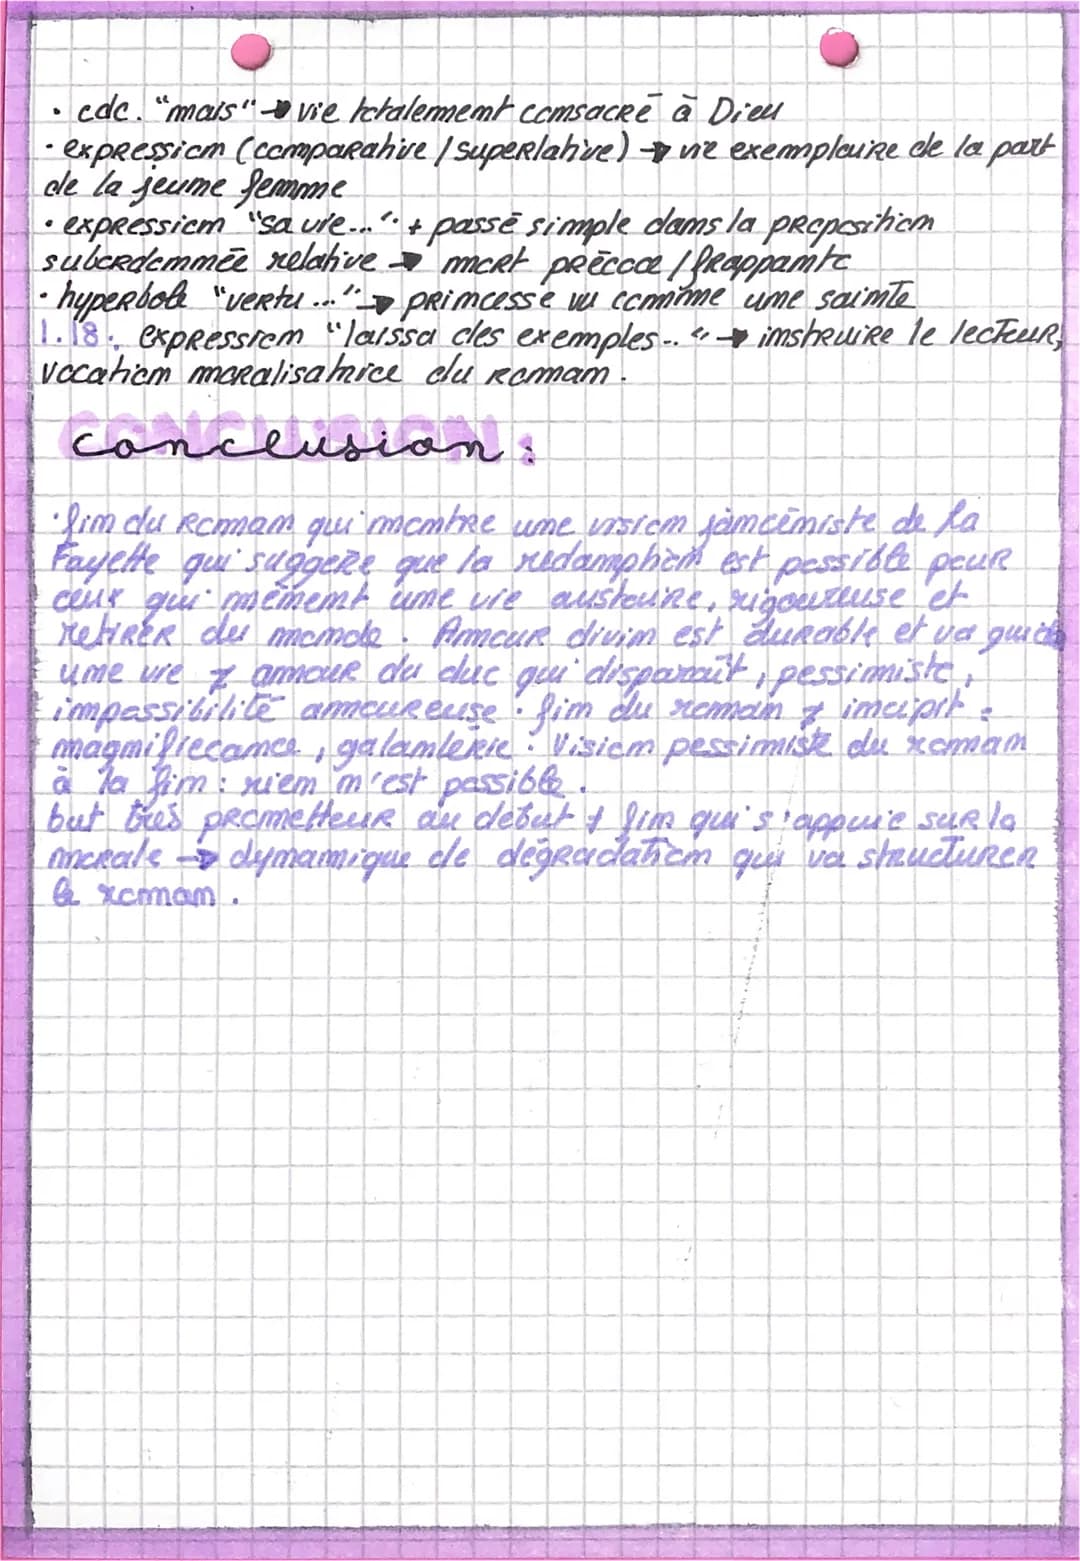 · cdc. "mais" → vie totalement consacré à Dieu
· expression (comparative / superlative) → vie exemplaire de la part
de la jeune femme
· expression "sa vie..." + passé simple dans la proposition
subordonnée relative → mort précoce / frappante
· hyperbole "vertu..." → princesse vu comme une sainte
l.18. expression "laissa des exemples.." → instruire le lecteur,
vocation moralisatrice du roman.
CONCLUSION
conclusion :
· fin du roman qui montre une vision jancéniste de la
Fayette qui suggère que la rédamption est possible pour
ceux qui mènement une vie austaire, rigoureuse et
retirer du monde. Amour divin est durable et va guider
une vie ≠ amour du duc qui disparaît, pessimiste,
impossibilité amoureuse. fin du roman ≠ incipit =
magnifiecance, galanterie. Vision pessimiste du roman
à la fin : rien n'est possible.
but très prometteur au début ≠ fin qui s'appuie sur la
morale → dynamique de dégradation qui va structurer
le roman.